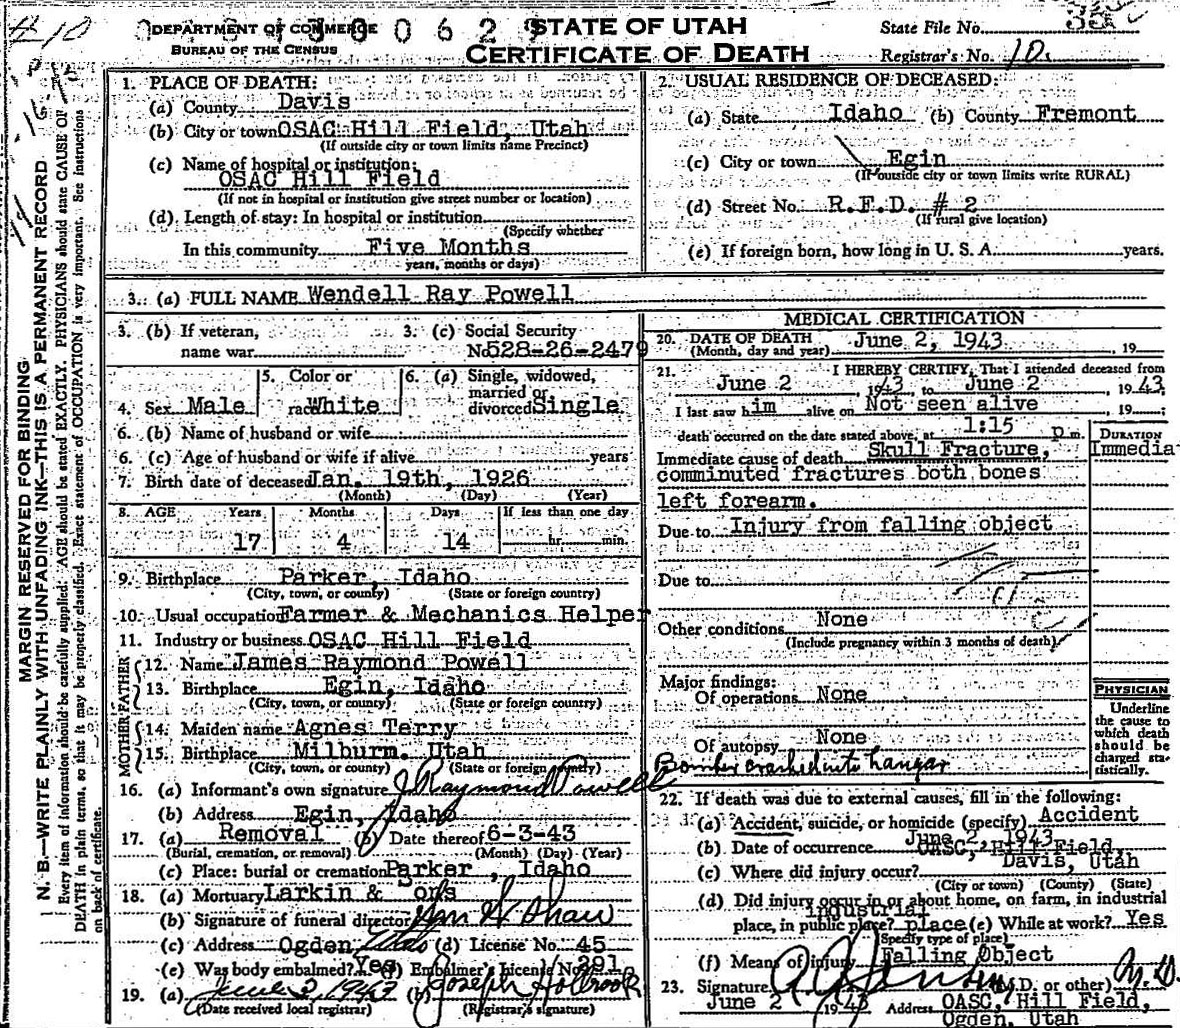 #10
DEPARTMENT OF COMMERCE
BUREAU OF THE CENSUS
STATE OF UTAH
CERTIFICATE OF DEATH
State File No. 35
Registrar's No. 10.
MARGIN RESERVED FOR BINDING
N. B.—WRITE PLAINLY WITH UNFADING INK—THIS IS A PERMANENT RECORD
Every item of information should be carefully supplied. AGE should be stated EXACTLY. PHYSICIANS should state CAUSE OF
DEATH in plain terms, so that it may be properly classified. Exact statement of OCCUPATION is very important. See instructions
on back of certificate.
1. PLACE OF DEATH:
(a) County Davis
(b) City or town OSAC Hill Field, Utah
(If outside city or town limits name Precinct)
(c) Name of hospital or institution:
OSAC Hill Field
(If not in hospital or institution give street number or location)
(d) Length of stay: In hospital or institution
(Specify whether
In this community Five Months
years, months or days)
2. USUAL RESIDENCE OF DECEASED:
(a) State Idaho (b) County Fremont
(c) City or town Egin
(If outside city or town limits write RURAL)
(d) Street No. R.F.D. # 2
(If rural give location)
(e) If foreign born, how long in U. S. A. years.
3. (a) FULL NAME Wendell Ray Powell
3. (b) If veteran, name war
3. (c) Social Security
No. 528-26-2479
4. Sex Male
5. Color or race White
6. (a) Single, widowed, married or divorced Single
6. (b) Name of husband or wife
6. (c) Age of husband or wife if alive years
7. Birth date of deceased Jan. 19th, 1926
(Month) (Day) (Year)
8. AGE Years Months Days If less than one day
17 4 14 hr. min.
9. Birthplace Parker, Idaho
(City, town, or county) (State or foreign country)
10. Usual occupation Farmer & Mechanics Helper
11. Industry or business OSAC Hill Field
FATHER
12. Name James Raymond Powell
13. Birthplace Egin, Idaho
(City, town, or county) (State or foreign country)
MOTHER
14. Maiden name Agnes Terry
15. Birthplace Milburn, Utah
(City, town, or county) (State or foreign country)
16. (a) Informant's own signature J. Raymond Powell
(b) Address Egin, Idaho
17. (a) Removal (b) Date thereof 6-3-43
(Burial, cremation, or removal) (Month) (Day) (Year)
(c) Place: burial or cremation Parker, Idaho
18. (a) Mortuary Larkin & Sons
(b) Signature of funeral director Wm H Shaw
(c) Address Ogden, Utah (d) License No. 45
(e) Was body embalmed? Yes (f) Embalmer's License No. 291
19. (a) June 3, 1943 (b) Joseph Holbrook
(Date received local registrar) (Registrar's signature)
MEDICAL CERTIFICATION
20. DATE OF DEATH June 2, 1943
(Month, day and year) , 19
21. I HEREBY CERTIFY, That I attended deceased from
June 2 1943, to June 2 1943.
I last saw him alive on Not seen alive , 19 ;
death occurred on the date stated above, at 1:15 p m.
DURATION
Immediate cause of death Skull Fracture, Immediat
comminuted fractures both bones
left forearm.
Due to Injury from falling object
Due to
Other conditions None
(Include pregnancy within 3 months of death)
Major findings:
Of operations None
Of autopsy None
PHYSICIAN
Underline
the cause to
which death
should be
charged sta-
tistically.
Bomber crashed into hangar
22. If death was due to external causes, fill in the following:
(a) Accident, suicide, or homicide (specify) Accident
(b) Date of occurrence June 2, 1943
OASC, Hill Field,
(c) Where did injury occur? Davis, Utah
(City or town) (County) (State)
(d) Did injury occur in or about home, on farm, in industrial
industrial
place, in public place? place (e) While at work? Yes
(Specify type of place)
(f) Means of injury Falling Object
23. Signature (M.D. or other) M.D.
June 2 1943 Address OASC, Hill Field,
Ogden, Utah